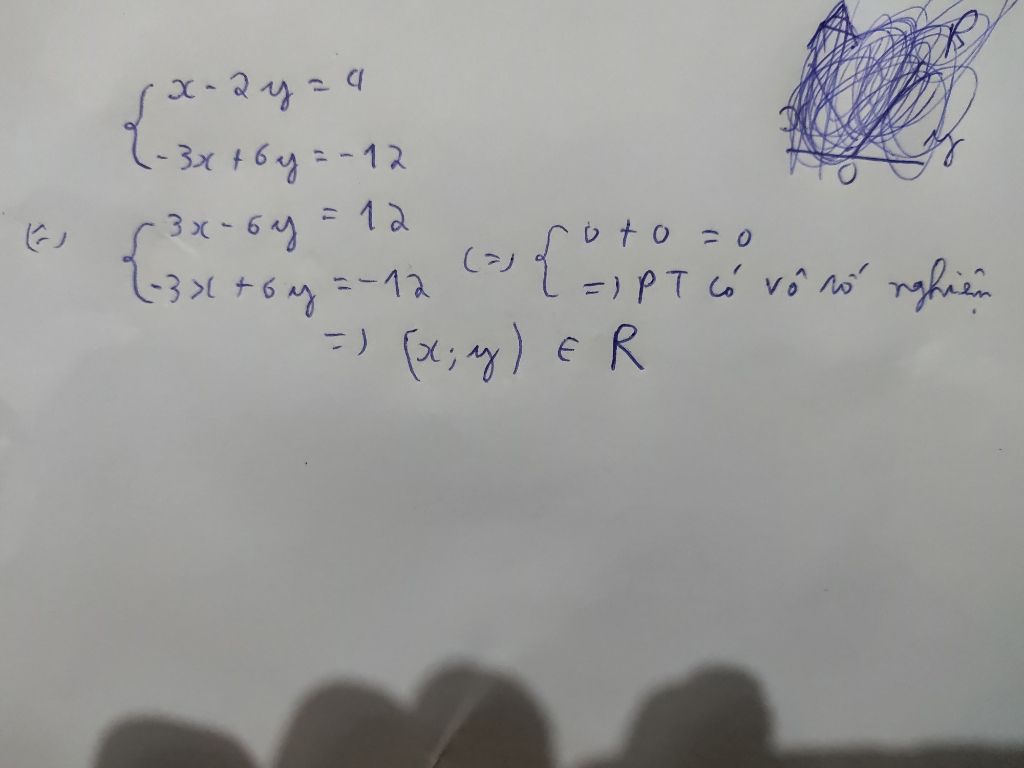 x - 2y = 4
-3x + 6y = -12
(=) 3x - 6y = 12
-3x + 6y = -12
(=) 0 + 0 = 0
=) PT có vô số nghiện
=) (x; y) ∈ R
R
y
0